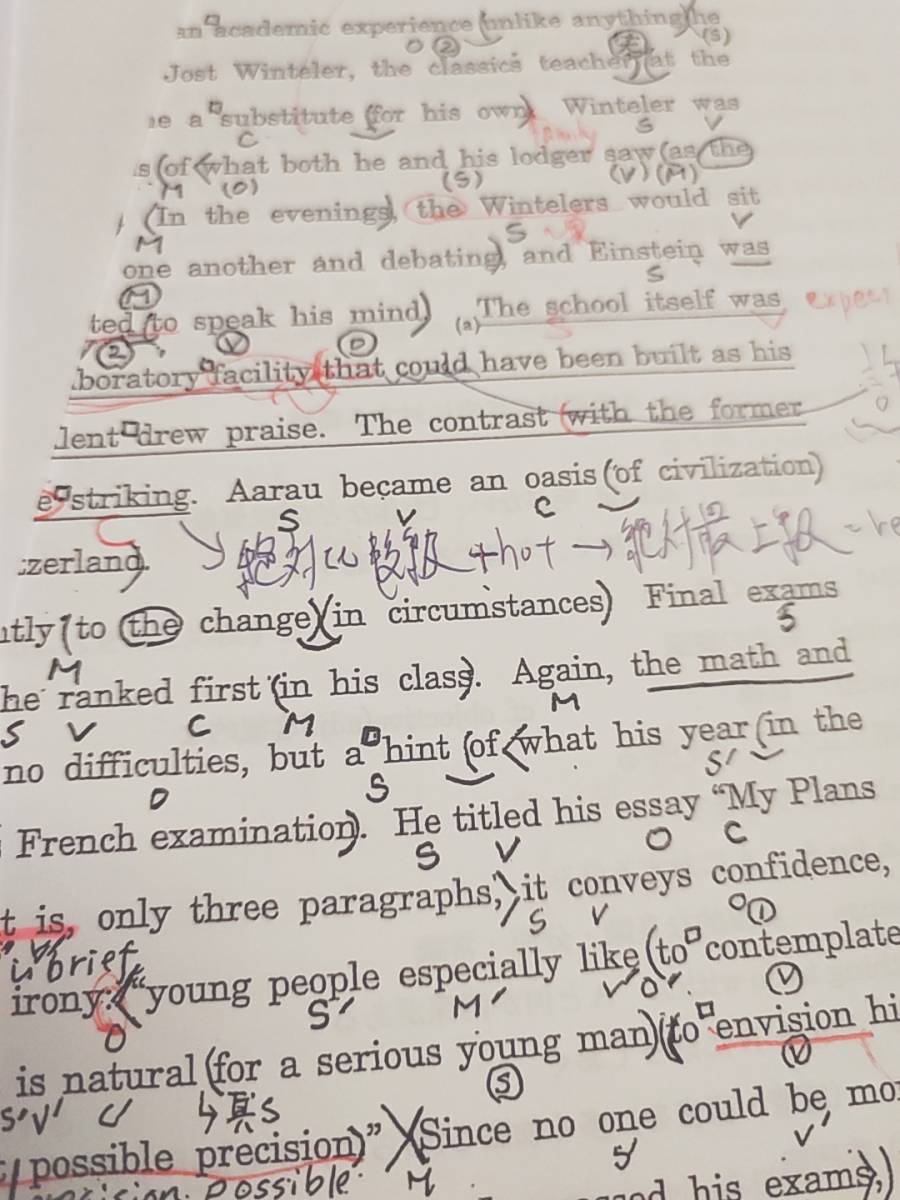 an academic experience (unlike anything) he
O ② (S)
Jost Winteler, the classics teacher, (at the
e a substitute (for his own). Winteler was
C family S V
s (of <what both he and his lodger saw (as the
M (O) (S) (V) (M)
(In the evenings), the Wintelers would sit
M S V
one another and debating), and Einstein was
M S
ted (to speak his mind) (a) The school itself was
② V O S V
boratory facility (that could have been built as his
lent drew praise. The contrast (with the former
e striking. Aarau became an oasis (of civilization)
S V C
zerland). 絶対比較級 +not → 絶対最上級
ntly (to the change) (in circumstances) Final exams
M S
he ranked first (in his class). Again, the math and
S V C M M
no difficulties, but a hint (of <what his year (in the
O S S'
French examination). He titled his essay "My Plans
S V O C
t is, only three paragraphs, it conveys confidence,
in brief S V O ①
irony: "young people especially like (to contemplate
O S' M' V' O' V
is natural (for a serious young man) (to envision hi
S' V' C' ↳真S S V
possible precision)" (Since no one could be mo
possible. M S' V'
his exams,)